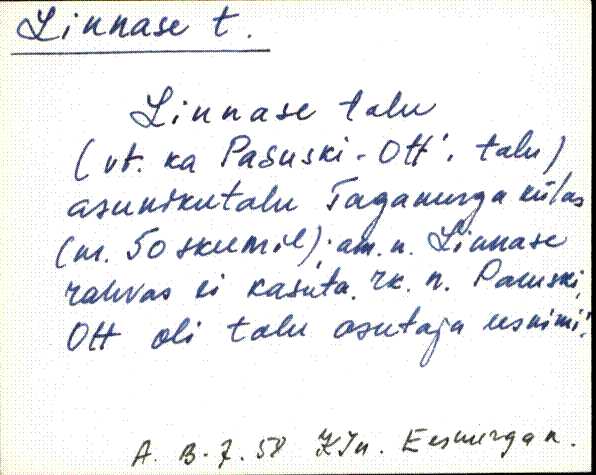 Linnase t.
Linnase talu
(vt. ka Pasuski-Ott'. talu)
asunikutalu Taganurga külas
(nr. 50 skeemil); am. n. Linnase
rahvas ei kasuta. rk. n. Pasuski,
Ott oli talu asutaja eesnimi.
A. B-7. 58 KJn. Eesnurga k.